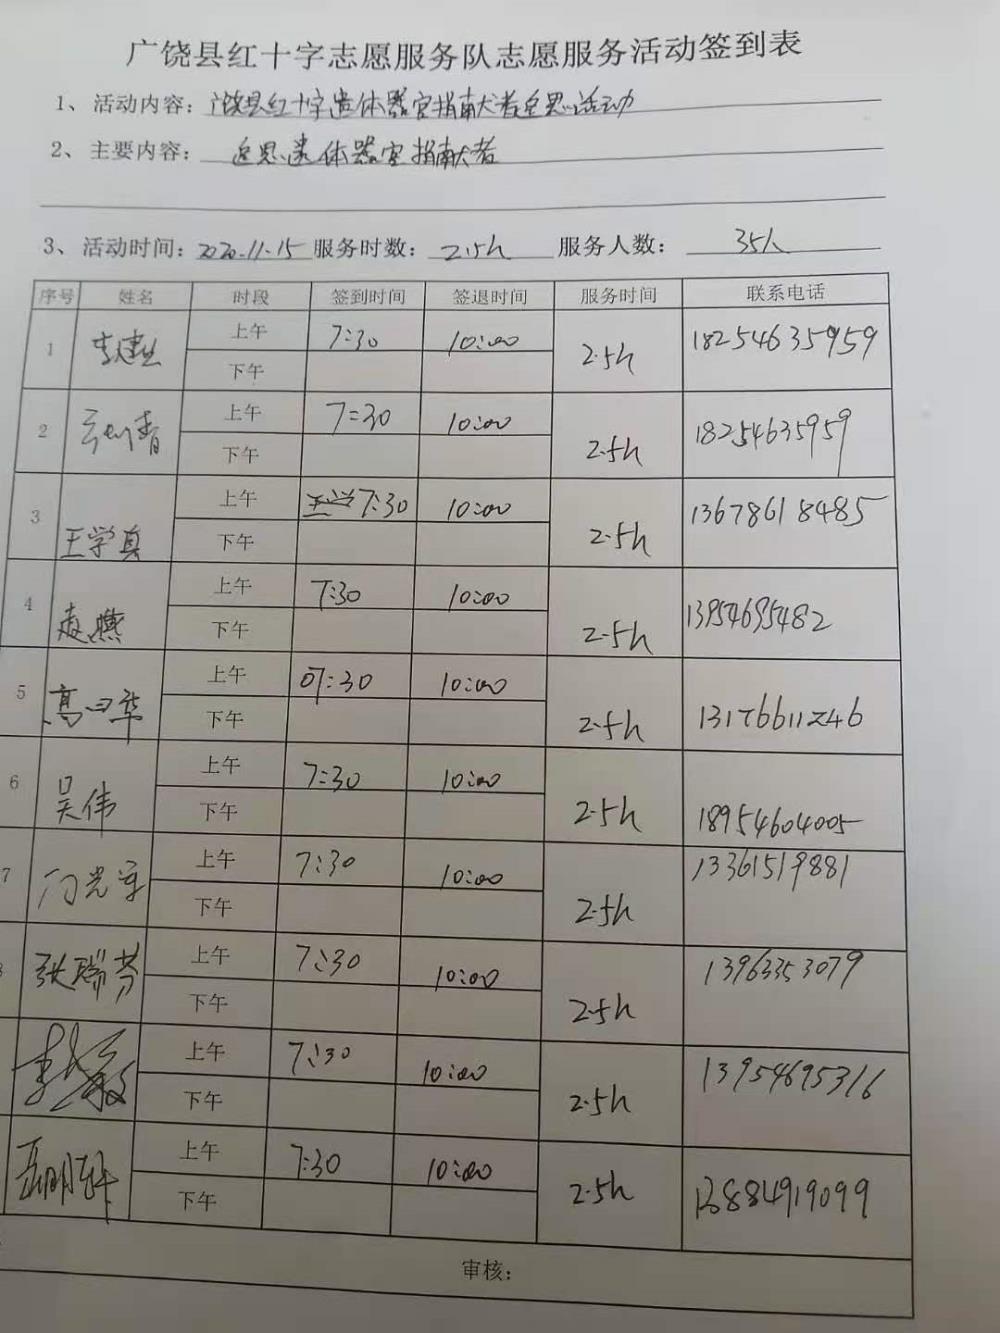 广饶县红十字志愿服务队志愿服务活动签到表
1、活动内容：广饶县红十字遗体器官捐献者追思活动
2、主要内容：追思遗体器官捐献者
3、活动时间：2020.11.15 服务时数：2.5h 服务人数：35人
序号 姓名 时段 签到时间 签退时间 服务时间 联系电话
1 上午 7:30 10:00 2.5h 18254635959
下午
2 上午 7:30 10:00 2.5h 18254635959
下午
3 王学真 上午 7:30 10:00 2.5h 13678618485
下午
4 上午 7:30 10:00 2.5h 13954695482
下午
5 上午 07:30 10:00 2.5h 13176611246
下午
6 吴伟 上午 7:30 10:00 2.5h 18954604005
下午
7 上午 7:30 10:00 2.5h 13361519881
下午
张瑞芳 上午 7:30 10:00 2.5h 13963353079
下午
上午 7:30 10:00 2.5h 13954695316
下午
上午 7:30 10:00 2.5h 13884919099
下午
审核：